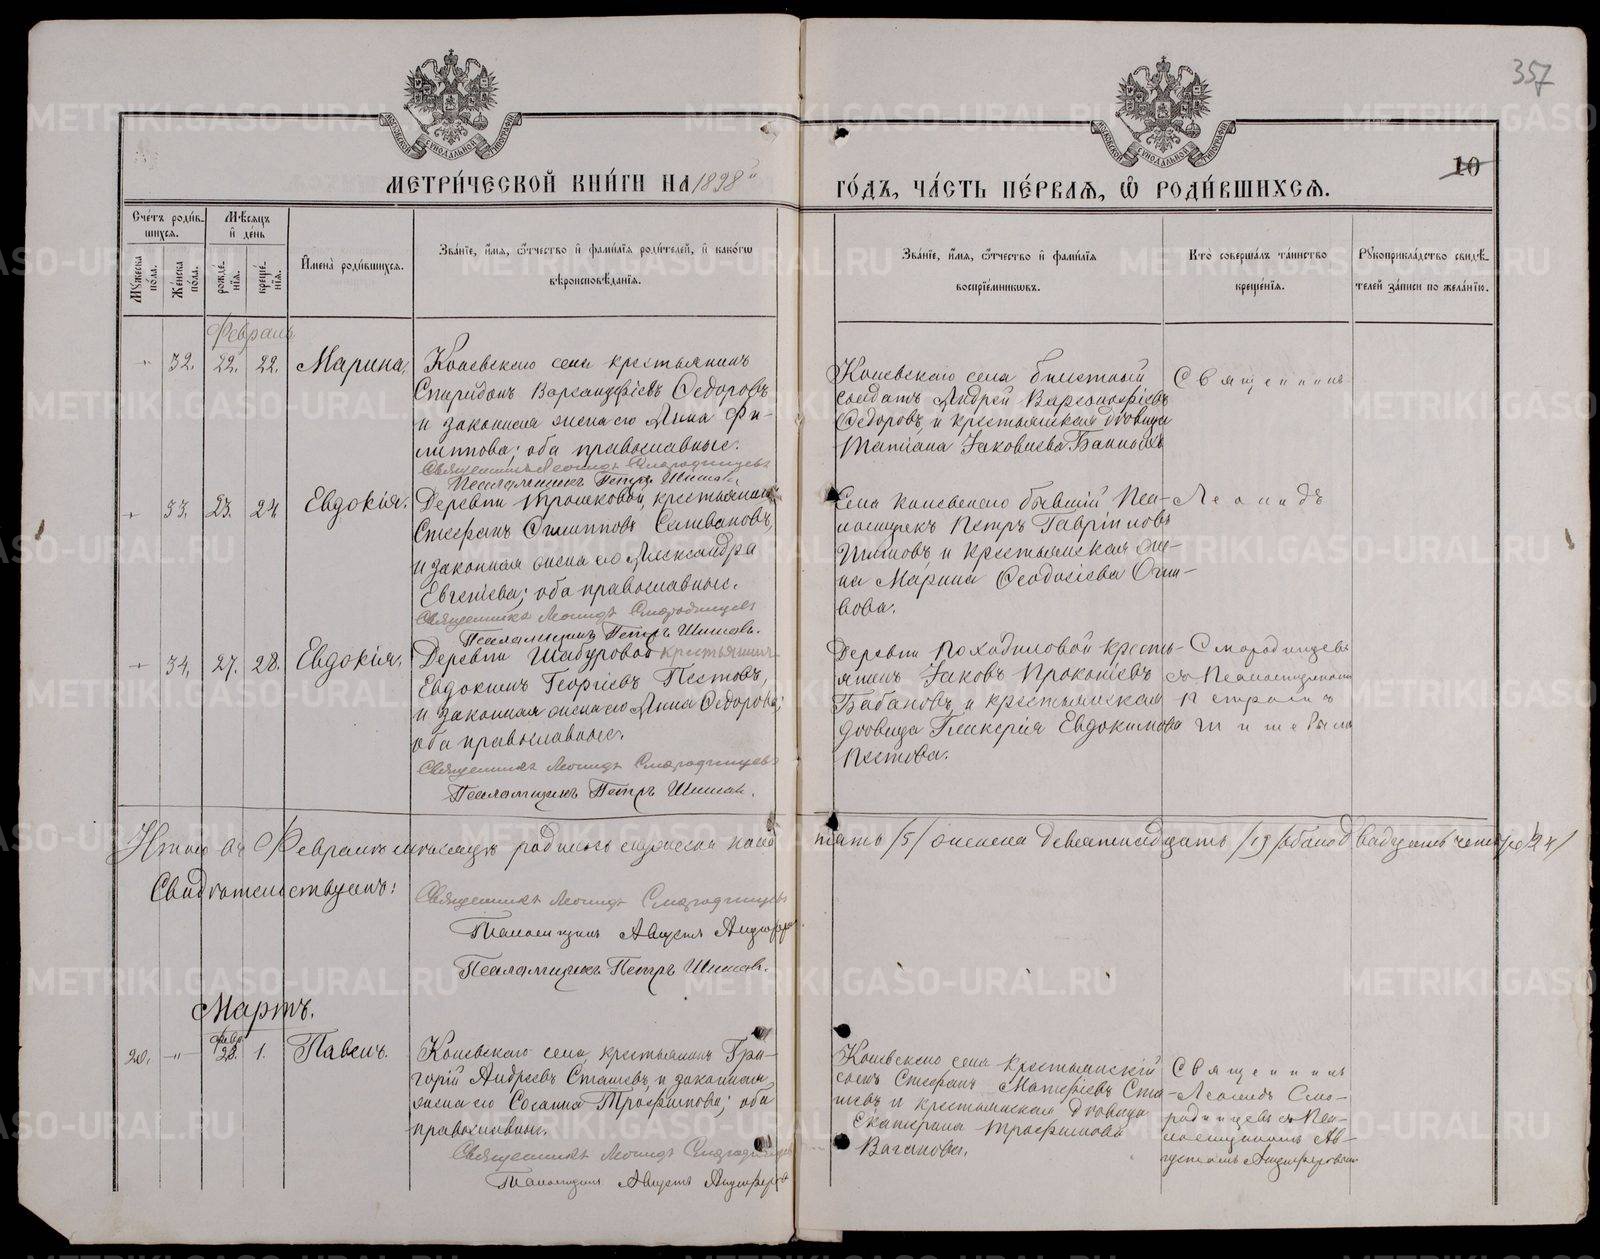 357
10
МЕТРИ́ЧЕСКОЙ КНИ́ГИ НА 1898й
ГО́ДЪ, ЧА́СТЬ ПЕ́РВАЯ, Ѡ РОДИ́ВШИХСЯ.
Сче́тъ роди́в-
шихся.
Мѣ́сяцъ
и де́нь
Му́жеска по́ла.
Же́нска по́ла.
рожде́-
нія.
креще́-
нія.
Имена̀ роди́вшихся.
Зва́ніе, и́мя, о́тчество и фами́лія роди́телей, и како́гѡ
вѣроисповѣ́данія.
Зва́ніе, и́мя, о́тчество и фами́лія
воспріе́мниковъ.
Кто̀ соверша́лъ та́инство
креще́нія.
Рукоприкла́дство свидѣ́-
телей за́писи по жела́нію.
Февраль
32. 22. 22. Марина,
Коневскаго села крестьянинъ
Спиридонъ Варсанофіевъ Ѳедоровъ
и законная жена его Анна Фи-
липпова; оба православные.
Священникъ Леонидъ Смородинцевъ
Псаломщикъ Петръ Шишовъ
Коневскаго села билетный
солдатъ Андрей Варсанофіевъ
Ѳедоровъ, и крестьянская дѣвица
Татіана Іаковлева
Священникъ
33. 23. 24 Евдокія.
Деревни крестьянинъ
Стефанъ Филипповъ Селивановъ,
и законная жена его Александра
Евгеніева; оба православные.
Священникъ Леонидъ Смородинцевъ
Псаломщикъ Петръ Шишовъ.
Села Коневскаго бывшій Пса-
ломщикъ Петръ Гавріиловъ
Шишовъ и крестьянская же-
на Марина Ѳеодосіева
Леонидъ
34, 27. 28. Евдокія,
Деревни Шабуровой крестьянинъ
Евдокимъ Георгіевъ Пестовъ,
и законная жена его Анна Ѳедорова;
оба православные.
Священникъ Леонидъ Смородинцевъ
Псаломщикъ Петръ Шишовъ.
Деревни Походиловой кресть-
янинъ Іаковъ Прокопіевъ
Бабановъ, и крестьянская
дѣвица Гликерія Евдокимова
Пестова.
Смородинцевъ
съ Псаломщикомъ
Петромъ
Шишовымъ
Итого въ Февралѣ мѣсяцѣ родилось мужеска пола пять /5/ женска девятнадцать /19/ обоего двадцать четыре /24/
Свидѣтельствуемъ:
Священникъ Леонидъ Смородинцевъ
Псаломщикъ Августъ
Псаломщикъ Петръ Шишовъ.
Мартъ.
Февр.
20. -"- 28. 1. Павелъ.
Коневскаго села, крестьянинъ Гри-
горій Андреевъ Сташевъ, и законная
жена его Сосанна Трофимова; оба
православные.
Священникъ Леонидъ Смородинцевъ
Псаломщикъ Августъ
Коневскаго села крестьянскій
сынъ Стефанъ Матѳіевъ Ста-
шевъ и крестьянская дѣвица
Екатерина Трофимова
Ваганова.
Священникъ
Леонидъ Смо-
родинцевъ съ Пса-
ломщикомъ Ав-
густомъ
METRIKI.GASO-URAL.RU